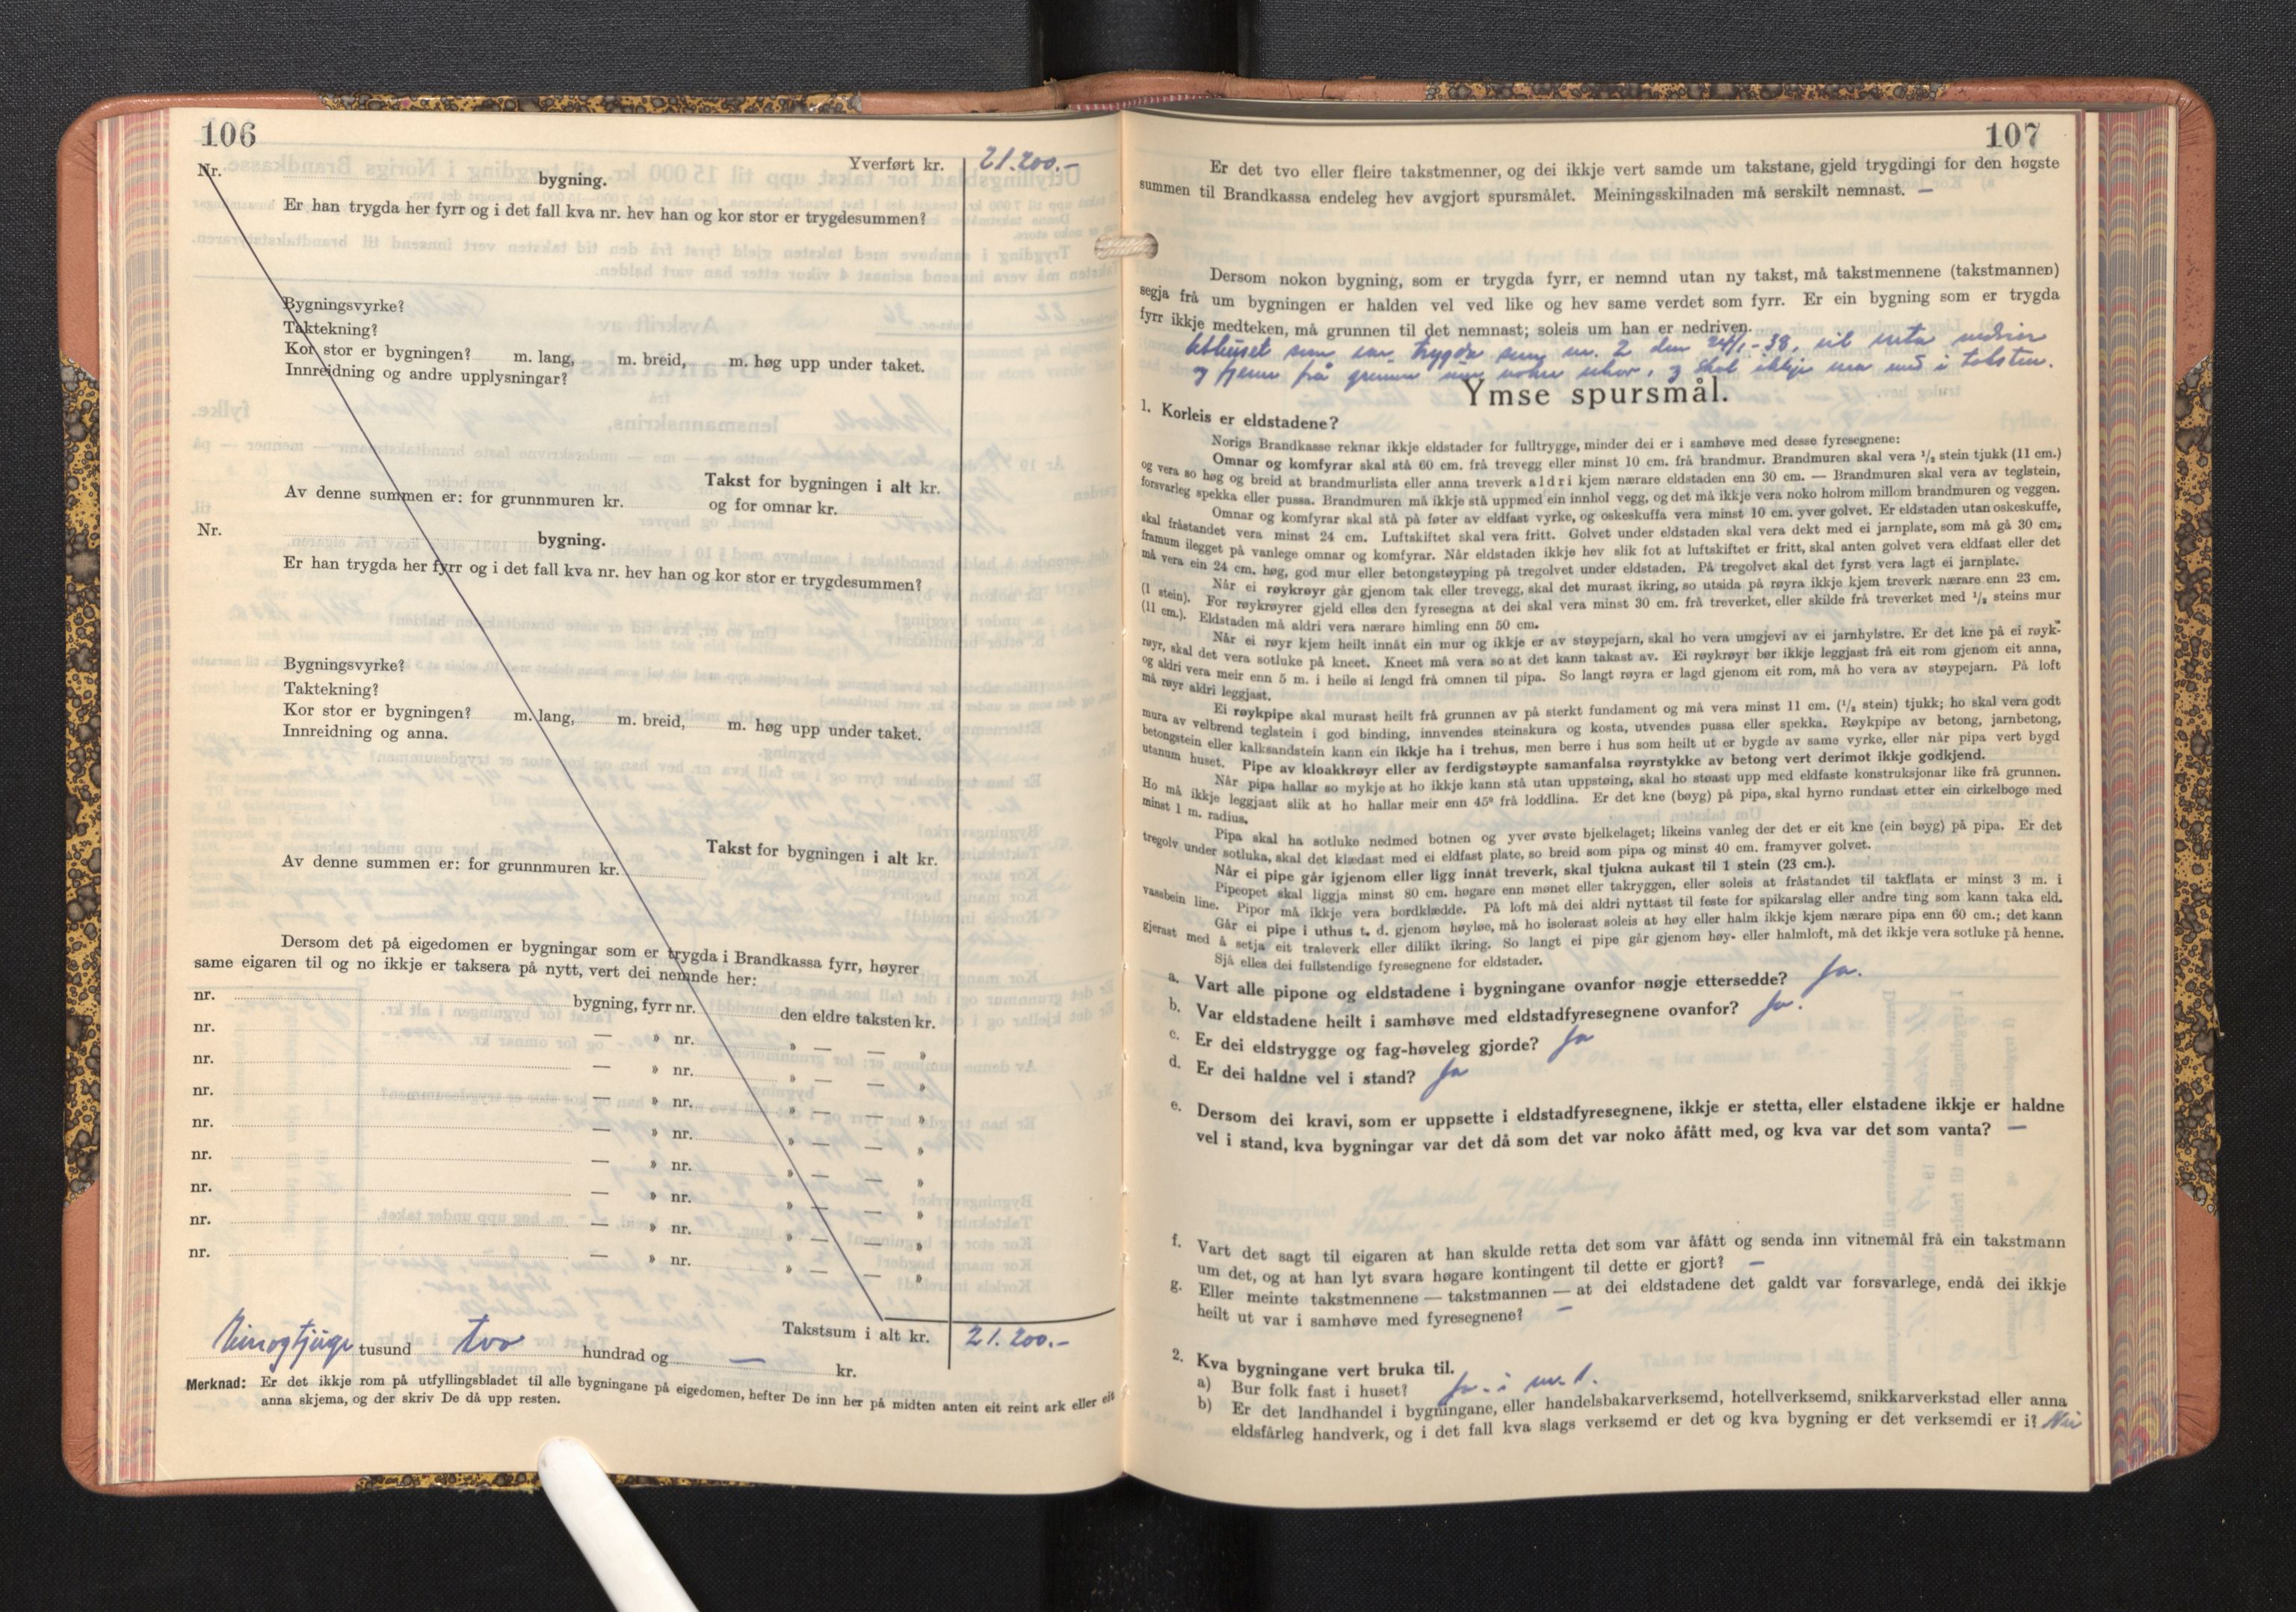 106
Nr.
bygning.
Yverført kr. 21.200.-
Er han trygda her fyrr og i det fall kva nr. hev han og kor stor er trygdesummen?
Bygningsvyrke?
Taktekning?
Kor stor er bygningen? m. lang, m. breid, m. høg upp under taket.
Innreidning og andre upplysningar?
Takst for bygningen i alt kr.
Av denne summen er: for grunnmuren kr. og for omnar kr.
Nr.
bygning.
Er han trygda her fyrr og i det fall kva nr. hev han og kor stor er trygdesummen?
Bygningsvyrke?
Taktekning?
Kor stor er bygningen? m. lang, m. breid, m. høg upp under taket.
Innreidning og anna.
Takst for bygningen i alt kr.
Av denne summen er: for grunnmuren kr.
Dersom det på eigedomen er bygningar som er trygda i Brandkassa fyrr, høyrer
same eigaren til og no ikkje er taksera på nytt, vert dei nemnde her:
nr. bygning, fyrr nr. den eldre taksten kr.
nr. — » nr. » — — »
nr. — » nr. » — — »
nr. — » nr. » — — »
nr. — » nr. » — — »
nr. — » nr. » — — »
nr. — » nr. » — — »
nr. — » nr. » — — »
nr. — » nr. » — — »
Takstsum i alt kr. 21.200.-
Einogtjuge tusund tvo hundrad og — kr.
Merknad: Er det ikkje rom på utfyllingsbladet til alle bygningane på eigedomen, hefter De inn her på midten anten eit reint ark eller eit
anna skjema, og der skriv De då upp resten.
107
Er det tvo eller fleire takstmenner, og dei ikkje vert samde um takstane, gjeld trygdingi for den høgste
summen til Brandkassa endeleg hev avgjort spursmålet. Meiningsskilnaden må serskilt nemnast. —
Dersom nokon bygning, som er trygda fyrr, er nemnd utan ny takst, må takstmennene (takstmannen)
segja frå um bygningen er halden vel ved like og hev same verdet som fyrr. Er ein bygning som er trygda
fyrr ikkje medteken, må grunnen til det nemnast; soleis um han er nedriven.
som var trygda som nr. 2 den 24/1-38, vil
og frå grunnen og skal ikkje vera med i taksten.
Ymse spursmål.
1. Korleis er eldstadene?
Norigs Brandkasse reknar ikkje eldstader for fulltrygge, minder dei er i samhøve med desse fyresegnene:
Omnar og komfyrar skal stå 60 cm. frå trevegg eller minst 10 cm. frå brandmur. Brandmuren skal vera 1/2 stein tjukk (11 cm.)
og vera so høg og breid at brandmurlista eller anna treverk aldri kjem nærare eldstaden enn 30 cm. — Brandmuren skal vera av teglstein,
forsvarleg spekka eller pussa. Brandmuren må ikkje stå uppmed ein innhol vegg, og det må ikkje vera noko holrom millom brandmuren og veggen.
Omnar og komfyrar skal stå på føter av eldfast vyrke, og oskeskuffa vera minst 10 cm. yver golvet. Er eldstaden utan oskeskuffe,
skal fråstandet vera minst 24 cm. Luftskiftet skal vera fritt. Golvet under eldstaden skal vera dekt med ei jarnplate, som må gå 30 cm.
framum ilegget på vanlege omnar og komfyrar. Når eldstaden ikkje hev slik fot at luftskiftet er fritt, skal anten golvet vera eldfast eller det
må vera ein 24 cm. høg, god mur eller betongstøyping på tregolvet under eldstaden. På tregolvet skal det fyrst vera lagt ei jarnplate.
Når ei røykrøyr går gjenom tak eller trevegg, skal det murast ikring, so utsida på røyra ikkje kjem treverk nærare enn 23 cm.
(1 stein). For røykrøyrer gjeld elles den fyresegna at dei skal vera minst 30 cm. frå treverket, eller skilde frå treverket med 1/2 steins mur
(11 cm.). Eldstaden må aldri vera nærare himling enn 50 cm.
Når ei røyr kjem heilt innåt ein mur og ikkje er av støypejarn, skal ho vera umgjevi av ei jarnhylstre. Er det kne på ei røyk-
røyr, skal det vera sotluke på kneet. Kneet må vera so at det kann takast av. Ei røykrøyr bør ikkje leggjast frå eit rom gjenom eit anna,
og aldri vera meir enn 5 m. i heile si lengd frå omnen til pipa. So langt røyra er lagd gjenom eit rom, må ho vera av støypejarn. På loft
må røyr aldri leggjast.
Ei røykpipe skal murast heilt frå grunnen av på sterkt fundament og må vera minst 11 cm. (1/2 stein) tjukk; ho skal vera godt
mura av velbrend teglstein i god binding, innvendes steinskura og kosta, utvendes pussa eller spekka. Røykpipe av betong, jarnbetong,
betongstein eller kalksandstein kann ein ikkje ha i trehus, men berre i hus som heilt ut er bygde av same vyrke, eller når pipa vert bygd
utanum huset. Pipe av kloakkrøyr eller av ferdigstøypte samanfalsa røyrstykke av betong vert derimot ikkje godkjend.
Når pipa hallar so mykje at ho ikkje kann stå utan uppstøing, skal ho støast upp med eldfaste konstruksjonar like frå grunnen.
Ho må ikkje leggjast slik at ho hallar meir enn 45° frå loddlina. Er det kne (bøyg) på pipa, skal hyrno rundast etter ein cirkelboge med
minst 1 m. radius.
Pipa skal ha sotluke nedmed botnen og yver øvste bjelkelaget; likeins vanleg der det er eit kne (ein bøyg) på pipa. Er det
tregolv under sotluka, skal det klædast med ei eldfast plate, so breid som pipa og minst 40 cm. framyver golvet.
Når ei pipe går igjenom eller ligg innåt treverk, skal tjukna aukast til 1 stein (23 cm.).
Pipeopet skal liggja minst 80 cm. høgare enn mønet eller takryggen, eller soleis at fråstandet til takflata er minst 3 m. i
vassbein line. Pipor må ikkje vera bordklædde. På loft må dei aldri nyttast til feste for spikarslag eller andre ting som kann taka eld.
Går ei pipe i uthus t. d. gjenom høyløe, må ho isolerast soleis at høy eller halm ikkje kjem nærare pipa enn 60 cm.; det kann
gjerast med å setja eit traleverk eller dilikt ikring. So langt ei pipe går gjenom høy- eller halmloft, må det ikkje vera sotluke på henne.
Sjå elles dei fullstendige fyresegnene for eldstader.
a. Vart alle pipone og eldstadene i bygningane ovanfor nøgje ettersedde? Ja.
b. Var eldstadene heilt i samhøve med eldstadfyresegnene ovanfor? Ja.
c. Er dei eldstrygge og fag-høveleg gjorde? Ja
d. Er dei haldne vel i stand? Ja
e. Dersom dei kravi, som er uppsette i eldstadfyresegnene, ikkje er stetta, eller elstadene ikkje er haldne
vel i stand, kva bygningar var det då som det var noko åfått med, og kva var det som vanta? —
f. Vart det sagt til eigaren at han skulde retta det som var åfått og senda inn vitnemål frå ein takstmann
um det, og at han lyt svara høgare kontingent til dette er gjort? —
g. Eller meinte takstmennene — takstmannen — at dei eldstadene det galdt var forsvarlege, endå dei ikkje
heilt ut var i samhøve med fyresegnene? —
2. Kva bygningane vert bruka til.
a) Bur folk fast i huset? Ja. i nr. 1.
b) Er det landhandel i bygningane, eller handelsbakarverksemd, hotellverksemd, snikkarverkstad eller anna
eldsfårleg handverk, og i det fall kva slags verksemd er det og kva bygning er det verksemdi er i? Nei